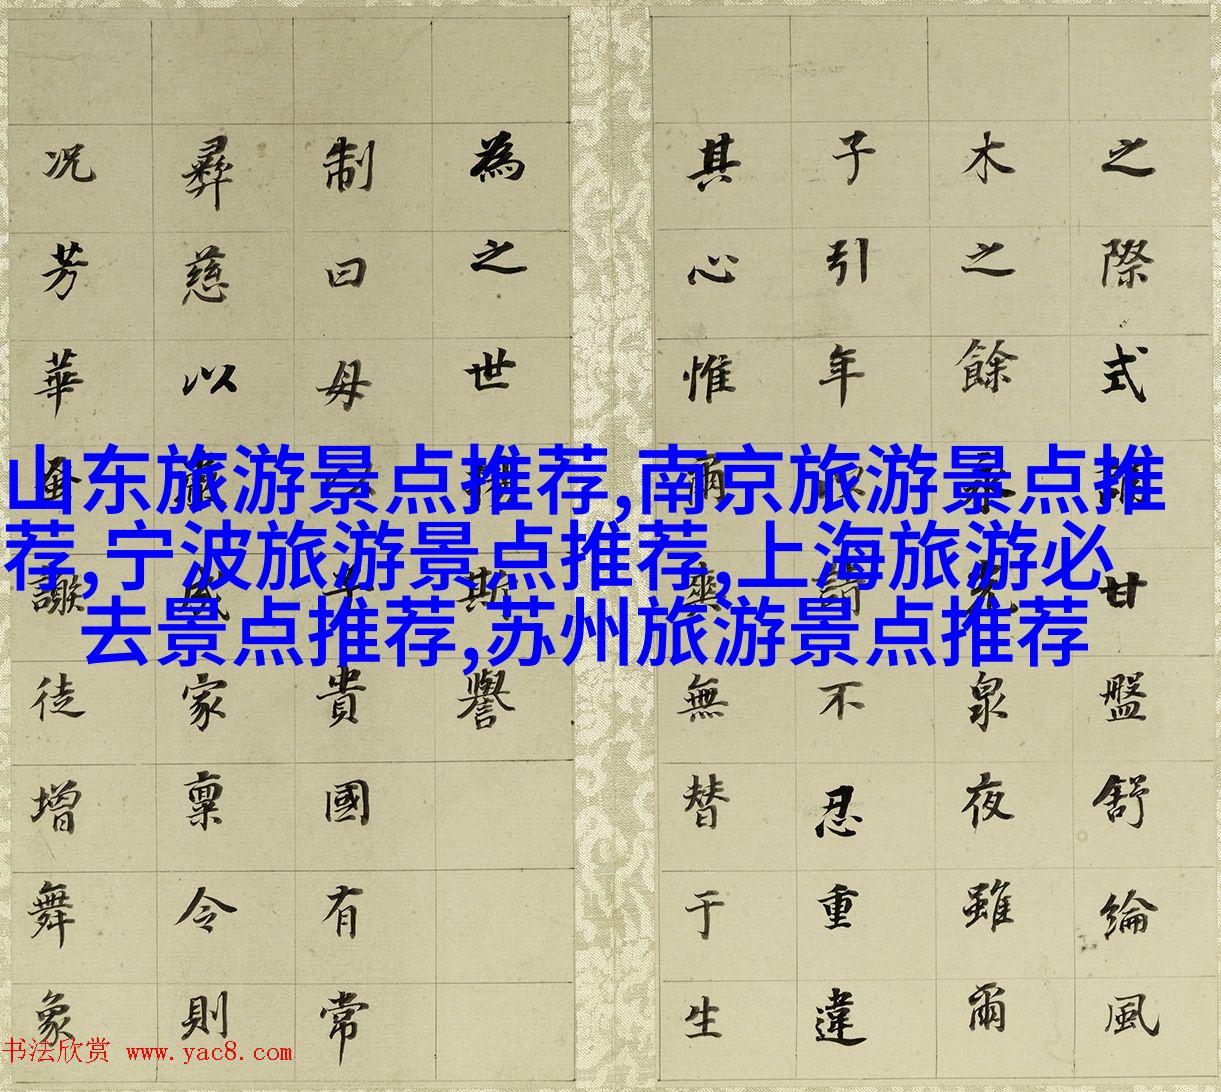 之際式廿盤舒綸風
木之餘先泉夜雖爾
子引年請不忍重違
其心惟爾座無替于生
為之世斯譽
制曰母以子貴國有常
彝慈以嚴成家稟令則
况芳華蚤謝徒增舞象
山东旅游景点推荐,南京旅游景点推
荐,宁波旅游景点推荐,上海旅游必
去景点推荐,苏州旅游景点推荐
书法欣赏 www.yac8.com